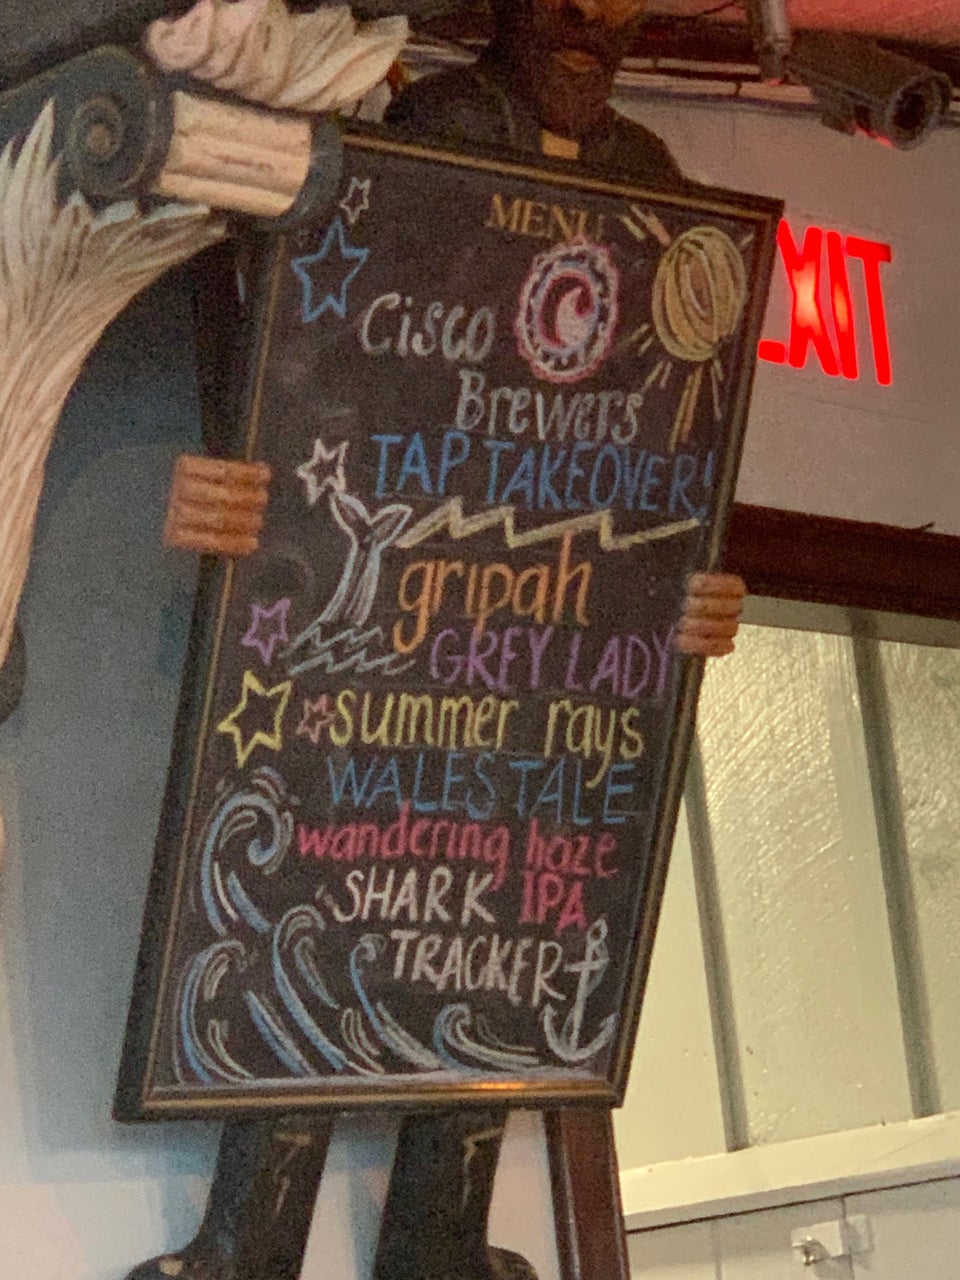 MENU
Cisco
Brewers
TAP TAKEOVER!
gripah
GREY LADY
summer rays
WALES TALE
wandering haze
IPA
SHARK
TRACKER
EXIT